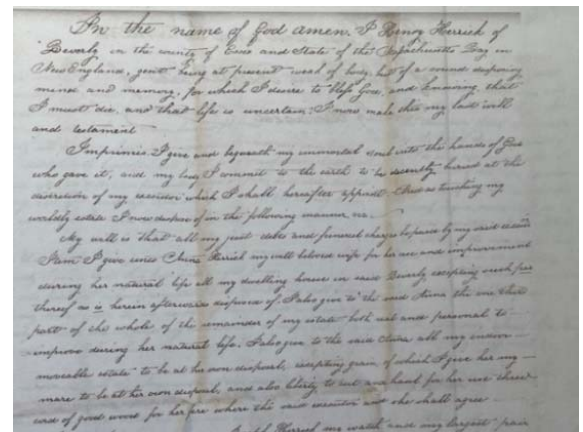 In the name of God amen. I Henry Herrick of
Beverly in the county of Essex and State of the Massachusetts Bay in
New England, gent being at present weak of body, but of a sound disposing
mind and memory, for which I desire to bless God, and knowing that
I must die, and that life is uncertain, I now make this my last will
and testament
Imprimis I give and bequeath my immortal soul into the hands of God
who gave it, and my body I commit to the earth to be decently buried at the
discretion of my executor which I shall hereafter appoint. And as touching my
worldly estate I now dispose of in the following manner, viz.
My will is that all my just debts and funeral charges be paid by my said executor
Item I give unto my well beloved wife for her use and improvement
during her natural life all my dwelling house in said Beverly excepting such part
thereof as is herein afterwards disposed of. I also give to the said Anna the one third
part of the whole of the remainder of my estate both real and personal to
improve during her natural life. I also give to the said all my indoor
moveable estate to be at her own disposal, excepting grain, of which I give her my
mare to be at her own disposal, and also liberty to cut and haul for her use three
cord of good wood for her fire where the said executor and she shall agree
Herrick my watch and my largest pair